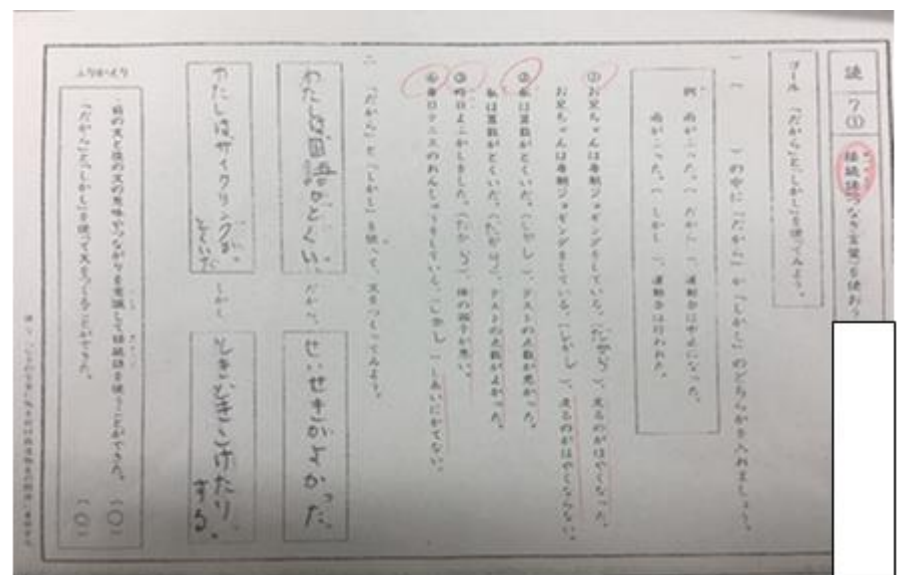 読 7 ①
接続語(つなぎ言葉)を使おう
ゴール 「だから」と「しかし」を使ってみよう。
一 ( )の中に「だから」か「しかし」のどちらかを入れましょう。
例 雨がふった。(だから)、運動会は中止になった。
雨がふった。(しかし)、運動会は行われた。
① お兄ちゃんは毎朝ジョギングをしている。(だから)、走るのがはやくなった。
お兄ちゃんは毎朝ジョギングをしている。(しかし)、走るのがはやくならない。
② 私は算数がとくいだ。(しかし)、テストの点数が悪かった。
私は算数がとくいだ。(だから)、テストの点数がよかった。
③ 昨日よふかしをした。(だから)、体の調子が悪い。
④ 毎日テニスのれんしゅうをしている。(しかし)しあいにかてない。
二 「だから」と「しかし」を使って、文をつくってみよう。
わたしは国語がとくい、だから、せいせきがよかった。
わたしはサイクリングがとくいだ。しかし、ときどきこけたりする。
ふりかえり
・前の文と後の文の意味やつながりを意識して接続語を使うことができた。(○)
・「だから」と「しかし」を使って文をつくることができた。(○)